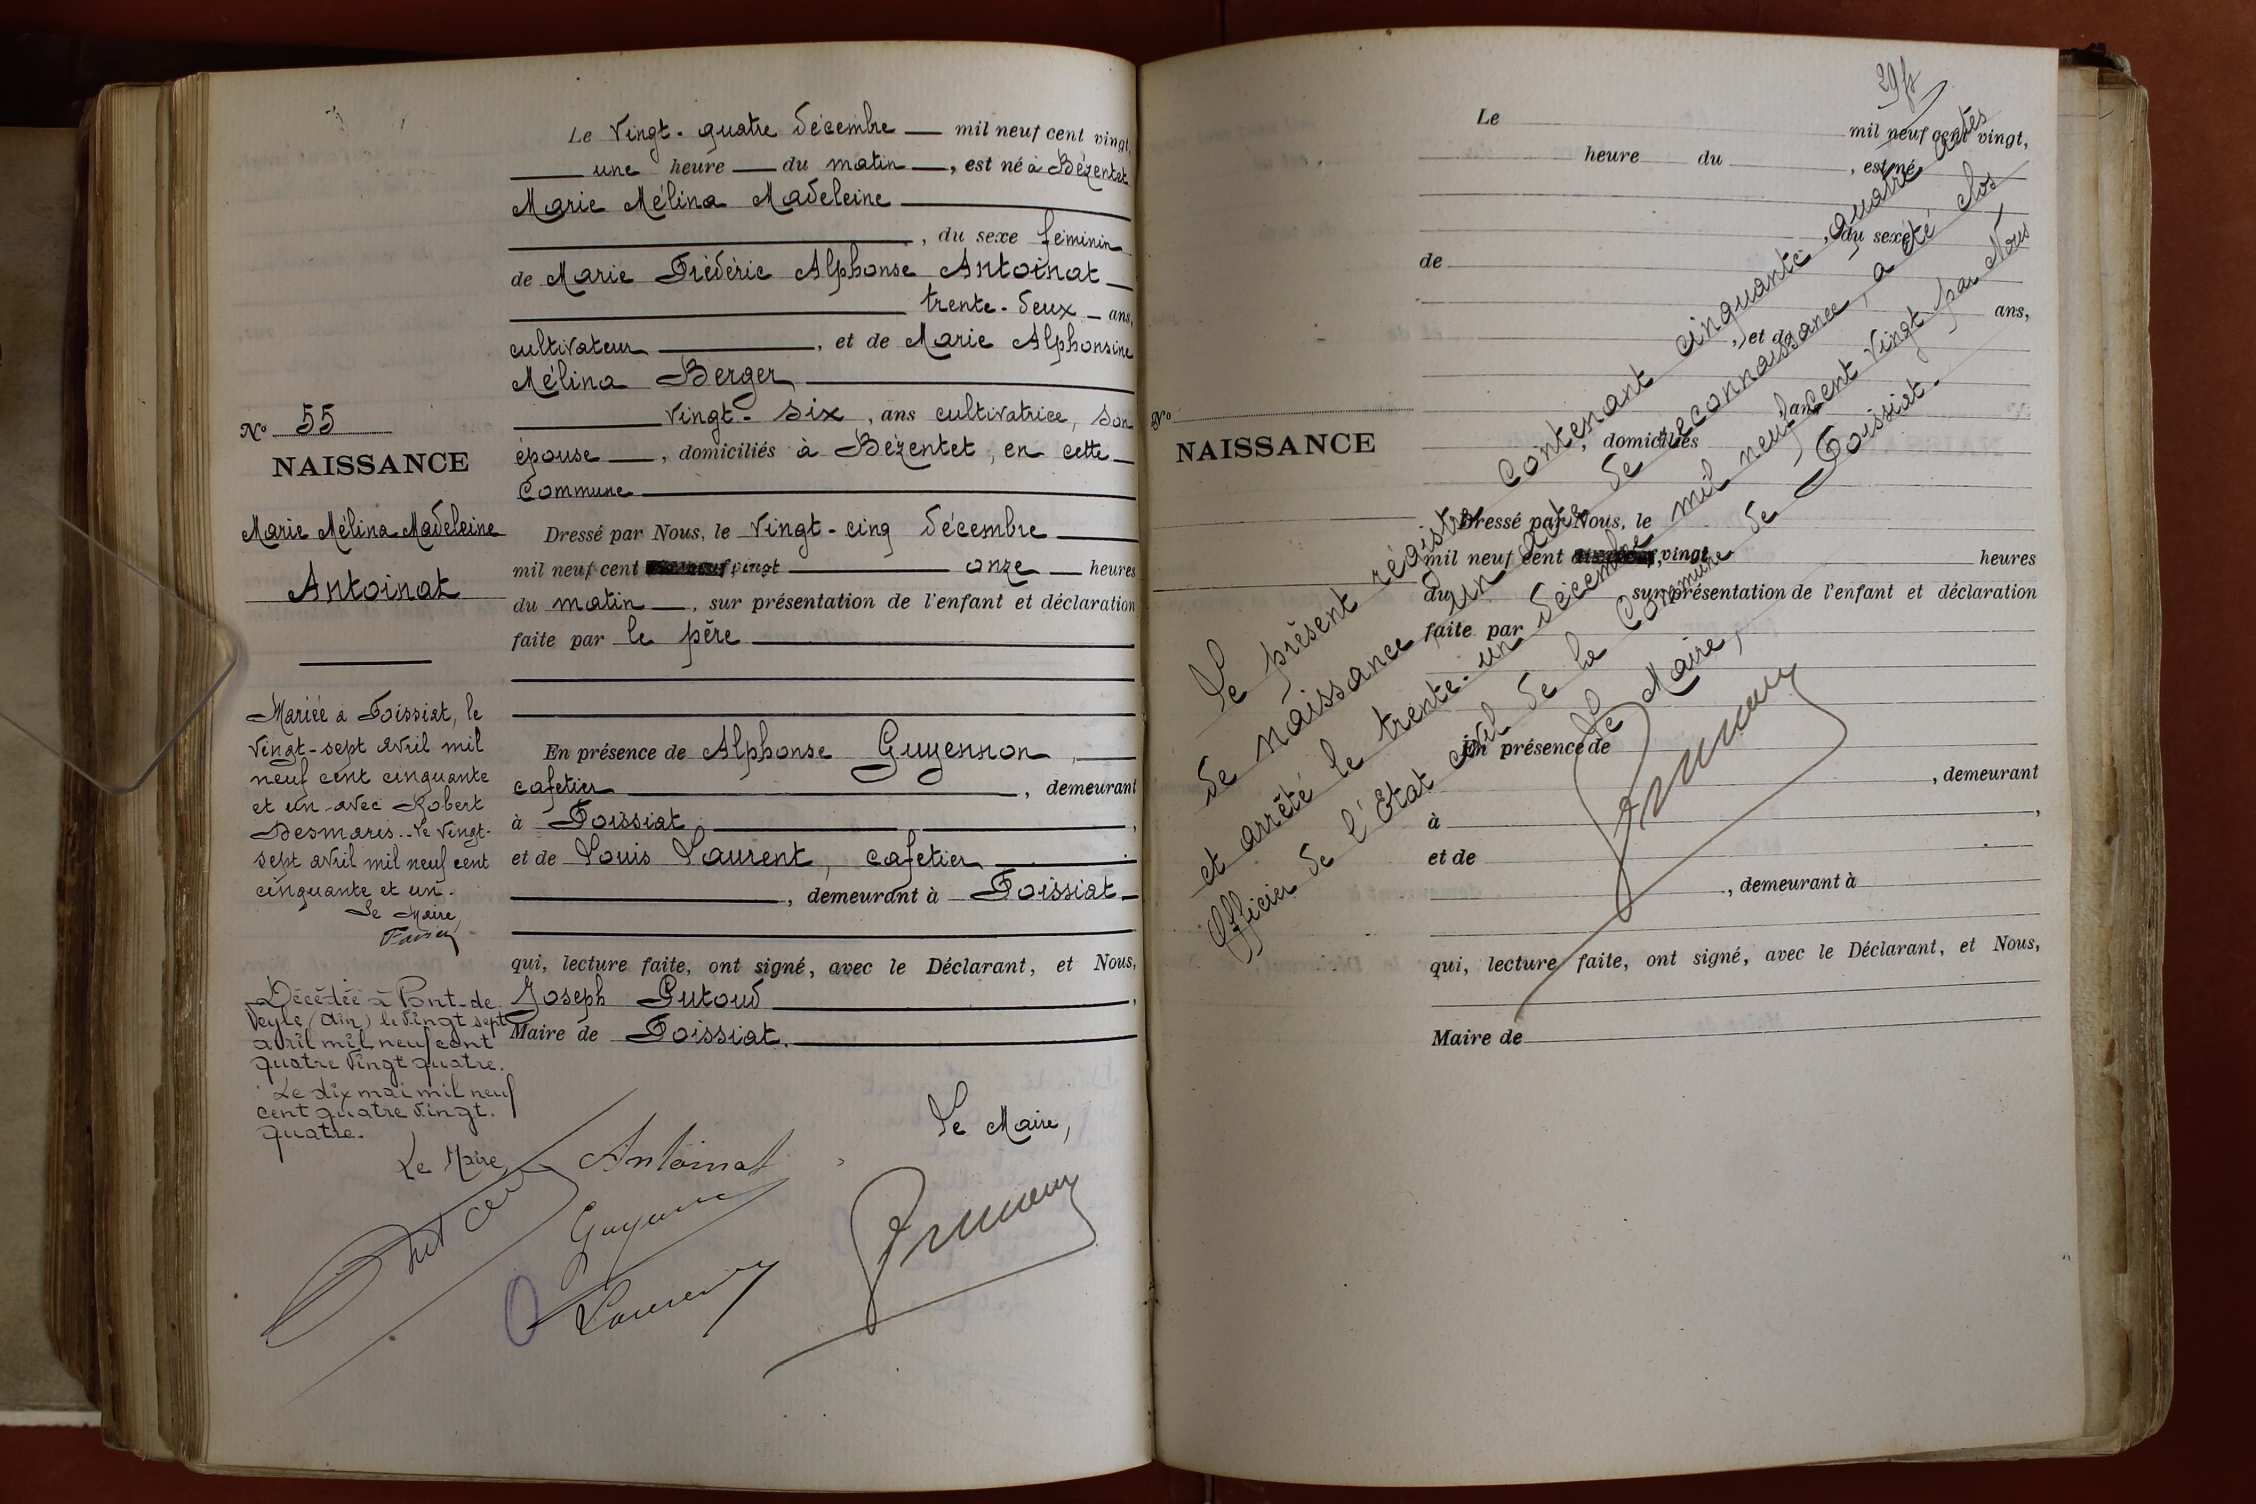 Le Vingt-quatre décembre mil neuf cent vingt,
une heure du matin, est né à Bézentet
Marie Mélina Madeleine
, du sexe féminin
de Marie Frédéric Alphonse Antoinat
trente-deux ans,
cultivateur, et de Marie Alphonsine
Mélina Berger
vingt-six, ans cultivatrice, son
épouse, domiciliés à Bézentet, en cette
Commune
Dressé par Nous, le vingt-cinq décembre
mil neuf cent vingt onze heures
du matin, sur présentation de l'enfant et déclaration
faite par le père
En présence de Alphonse Guyennon,
cafetier, demeurant
à Foissiat,
et de Louis Laurent, cafetier
, demeurant à Foissiat
qui, lecture faite, ont signé, avec le Déclarant, et Nous,
Joseph Putoud,
Maire de Foissiat.
Le Maire,
Antoinat
Laurent
No 55
NAISSANCE
Marie Mélina Madeleine
Antoinat
Mariée à Foissiat, le
vingt-sept avril mil
neuf cent cinquante
et un avec Robert
Desmaris. Le vingt-
sept avril mil neuf cent
cinquante et un.
Le Maire,
Décédée à Pont-de-
Veyle (Ain) le vingt sept
avril mil neuf cent
quatre vingt quatre.
Le dix mai mil neuf
cent quatre vingt.
quatre.
Le Maire
Le mil neuf cent vingt,
heure du , est né
, du sexe
de
ans,
, et de
ans
No
NAISSANCE
, domiciliés
Dressé par Nous, le
mil neuf cent vingt heures
du sur présentation de l'enfant et déclaration
faite par
En présence de
, demeurant
à ,
et de
, demeurant à
qui, lecture faite, ont signé, avec le Déclarant, et Nous,
Maire de
Le présent régistre contenant cinquante quatre actes
de naissance, un acte de reconnaissance, a été clos
et arrêté le trente-un décembre mil neuf cent vingt par Nous
Officier de l'Etat civil de la Commune de Foissiat.
Le Maire,